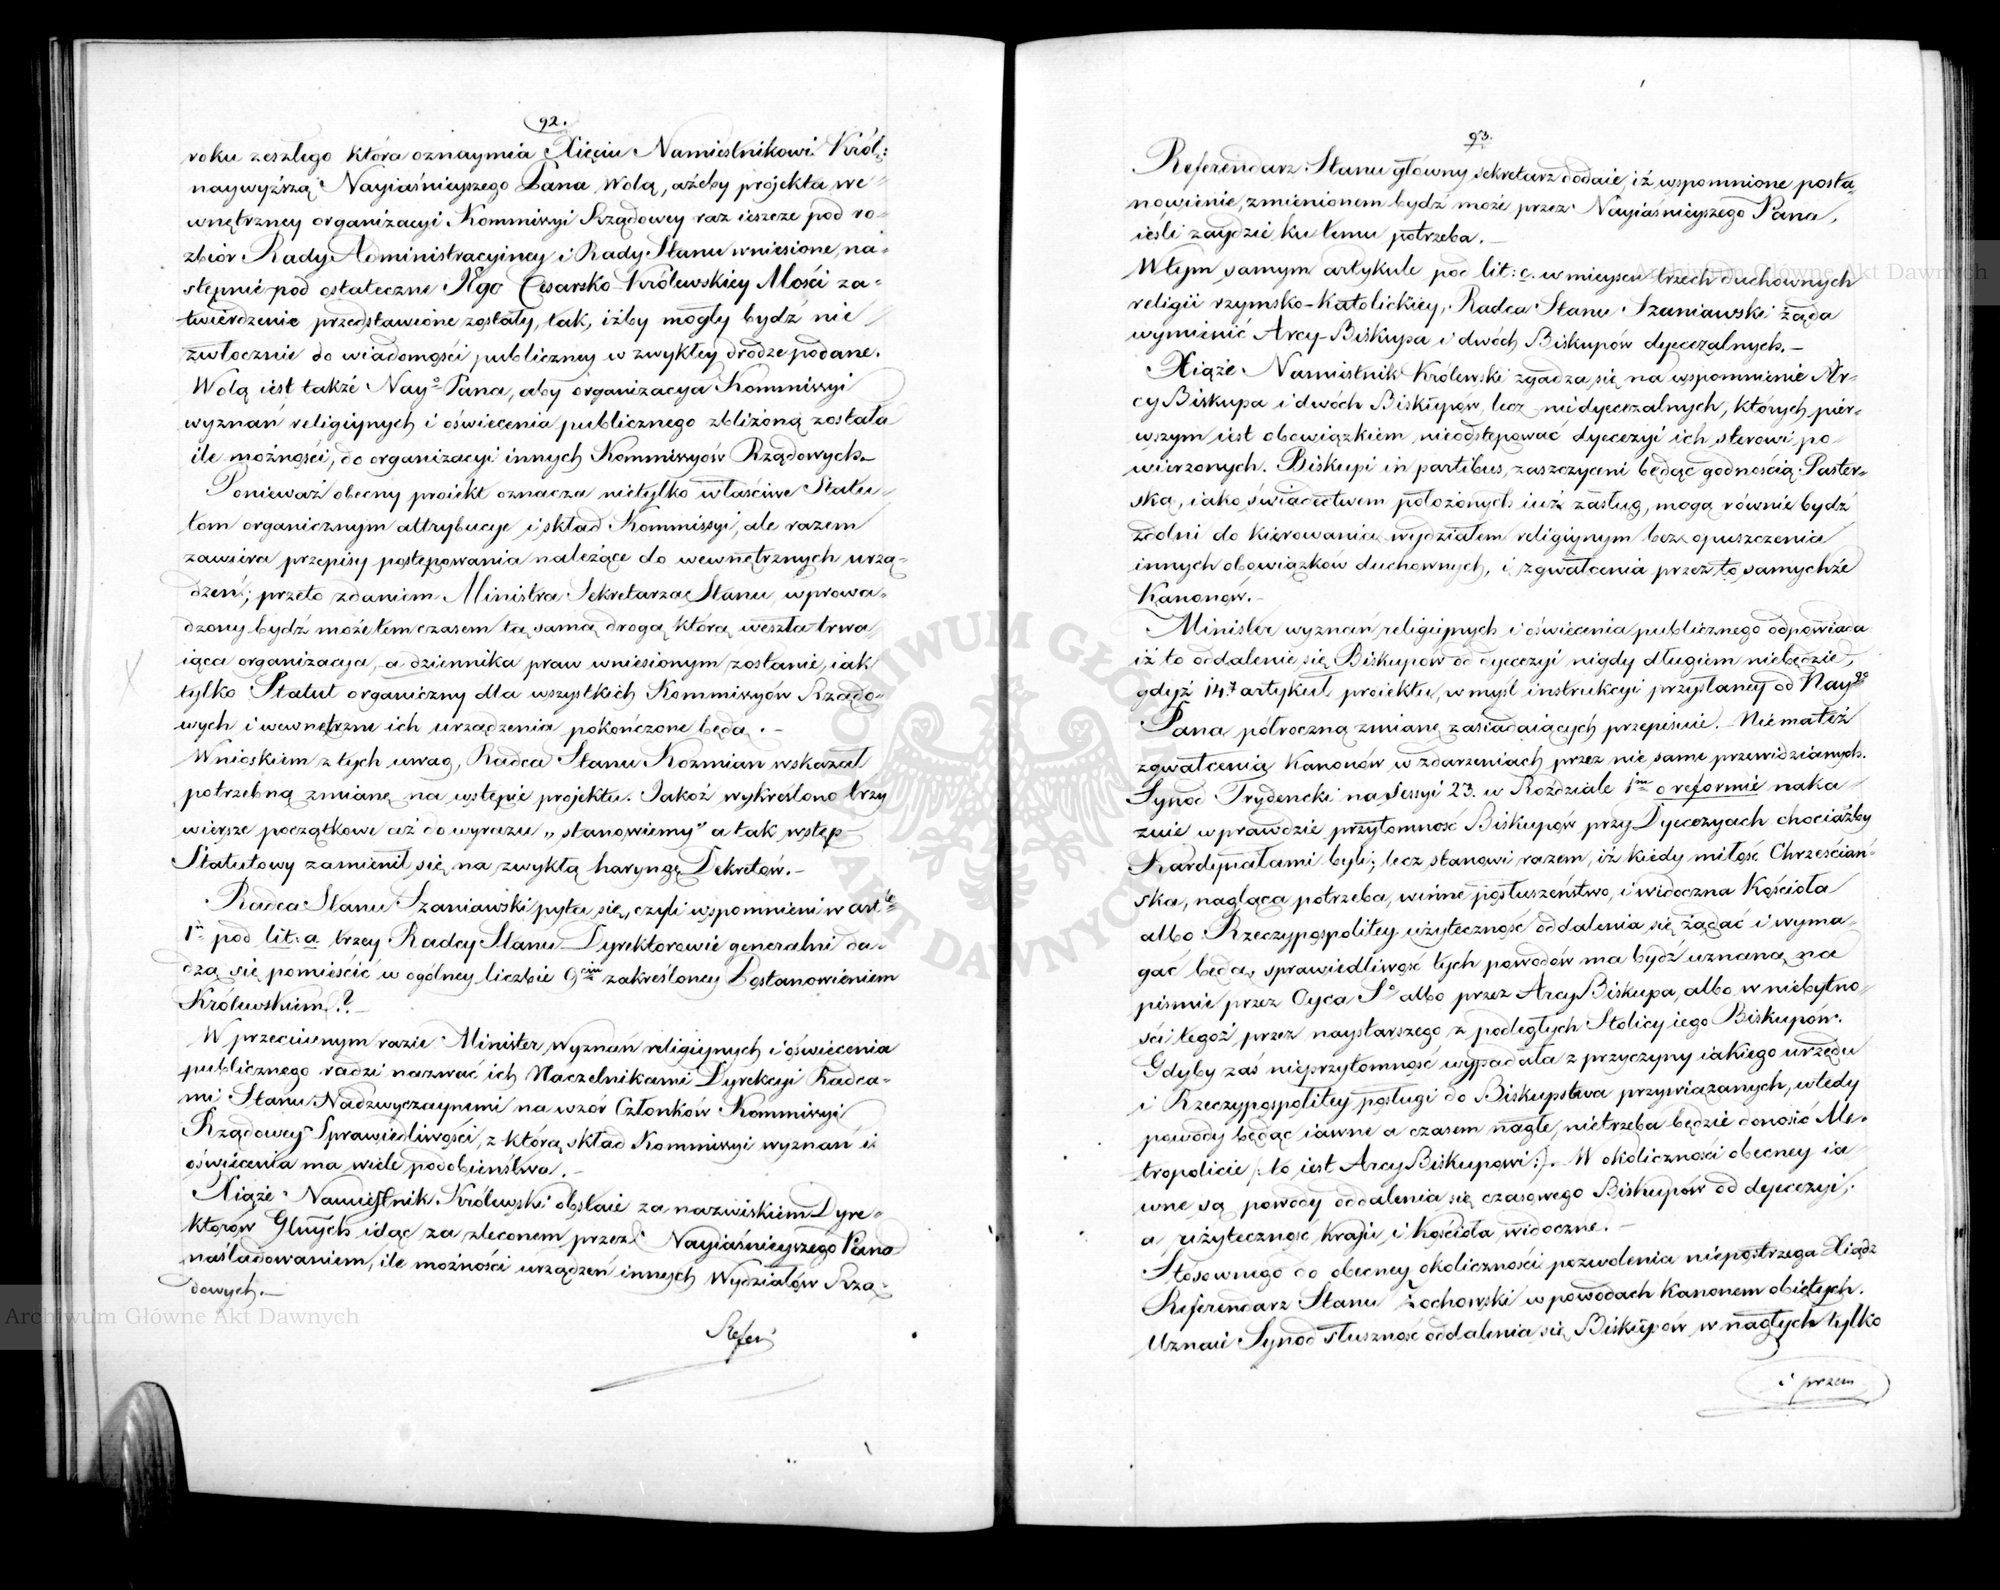 92.
roku zeszłego która oznaymia Xięciu Namiestnikowi Król:
naywyższą Nayiaśnieyszego Pana Wolą, ażeby projekta we-
wnętrzney organizacyi Kommissyi Rządowey raz ieszcze pod ro-
zbiór Rady Administracyiney i Rady Stanu wniesione, na-
stępnie pod ostateczne JEgo Cesarsko-Królewskiey Mości za-
twierdzenie przedstawione zostały, tak, iżby mogły bydź nie
zwłocznie do wiadomości publiczney w zwykłey drodze podane.
Wolą iest także Nayo Pana, aby organizacya Kommissyi
wyznań religiynych i oświecenia publicznego zbliżoną została
ile możności, do organizacyi innych Kommissyów Rządowych.-
Ponieważ obecny projekt oznacza nietylko właściwe Statu-
tom organicznym attrybucye i skład Kommissyi, ale razem
zawiera przepisy postępowania należące do wewnętrznych urzą-
dzeń; przeto zdaniem Ministra Sekretarza Stanu, wprowa-
dzony bydź może tem czasem tą samą drogą którą weszła trwa-
iąca organizacya, a dziennika praw wniesionym zostanie, iak
tylko Statut organiczny dla wszystkich Kommissyów Rządo-
wych i wewnętrzne ich urządzenia pokończone będą.-
Wnioskiem z tych uwag, Radca Stanu Kozmian wskazał
potrzebną zmianę na wstępie projektu. Jakoż wykreślono trzy
wiersze początkowe aż do wyrazu „stanowiemy" a tak wstęp
Statutowy zamienił się na zwykłą haryngę Dekretów.-
Radca Stanu Szaniawski pyta się, czyli wspomnieni w artle
1m pod lit: a trzey Radcy Stanu Dyrektorowie generalni da-
dzą się pomieścić w ogólney liczbie 9ciu zakreśloney Postanowieniem
Królewskiem?-
W przeciwnym razie Minister wyznań religiynych i oświecenia
publicznego radzi nazwać ich Naczelnikami Dyrekcyi Radca-
mi Stanu Nadzwyczaynemi na wzór Członków Kommissyi
Rządowey Sprawiedliwości, z którą skład Kommissyi wyznań i
oświecenia ma wiele podobieństwa.-
Xiąże Namiestnik Królewski obstaie za nazwiskiem Dyre-
ktorów Głnych idąc za zleconem przez Nayiaśnieyszego Pana
naśladowaniem, ile możności urządzeń innych Wydziałów Rzą-
dowych.-
Refer
93.
Referendarz Stanu główny sekretarz dodaie, iż wspomnione posta-
nowienie, zmienionem bydź może przez Nayiaśnieyszego Pana,
ieśli zaydzie ku temu potrzeba.-
W tym samym artykule pod lit: c. w mieyscu trzech duchownych
religii rzymsko-katolickiey, Radca Stanu Szaniawski żąda
wymienić Arcy-Biskupa i dwóch Biskupów dyecezalnych.-
Xiąże Namiestnik Królewski zgadza się na wspomnienie Ar-
cy Biskupa i dwóch Biskupów, lecz niedyecezalnych, których pier-
wszym iest obowiązkiem nieodstępować dyecezyi ich sterowi po-
wierzonych. Biskupi in partibus, zaszczyceni będąc godnością Paster-
ską, iako świadectwem położonych iuż zasług, mogą równie bydź
zdolni do kierowania wydziałem religiynym bez opuszczenia
innych obowiązków duchownych, i zgwałcenia przez to samychże
Kanonów.-
Minister wyznań religiynych i oświecenia publicznego odpowiada
iż to oddalenie się Biskupów od dyecezyi nigdy długiem niebędzie,
gdyż 14ty artykuł projektu, w myśl instrukcyi przysłaney od Naygo
Pana półroczną zmianę zasiadaiących przepisuie. Niema też
zgwałcenia Kanonów w zdarzeniach przez nie same przewidzianych.
Synod Trydencki na Sessyi 23. w Rozdziale 1m o reformie naka-
zuie wprawdzie przytomność Biskupów przy Dyecezyach chociażby
Kardynałami byli; lecz stanowi razem, iż kiedy miłość Chrześciań-
ska, nagląca potrzeba, winne posłuszeństwo, i widoczna Kościoła
albo Rzeczypospolitey użyteczność oddalenia się żądać i wyma-
gać będą, sprawiedliwość tych powodów ma bydź uznaną na
piśmie przez Oyca So albo przez Arcy Biskupa, albo w niebytno-
ści tegoż przez naystarszego z podległych Stolicy iego Biskupów.
Gdyby zaś nieprzytomność wypadała z przyczyny iakiego urzędu
i Rzeczypospolitey posługi do Biskupstwa przywiązanych, wtedy
powody będąc iawne a czasem nagłe, nietrzeba będzie donosić Me-
tropolicie /: to iest Arcy Biskupowi :/. W okoliczności obecney ia-
wne są powody oddalenia się czasowego Biskupów od dyecezyi;
a użyteczność kraju i Kościoła widoczne.-
Stosownego do obecney okoliczności pozwolenia niepostrzega Xiądz
Referendarz Stanu Żochowski w powodach Kanonem obiętych.
Uznał Synod słuszność oddalenia się Biskupów w nagłych tylko
i przem
Archiwum Główne Akt Dawnych
Archiwum Główne Akt Dawnych
ARCHIWUM GŁÓWNE AKT DAWNYCH